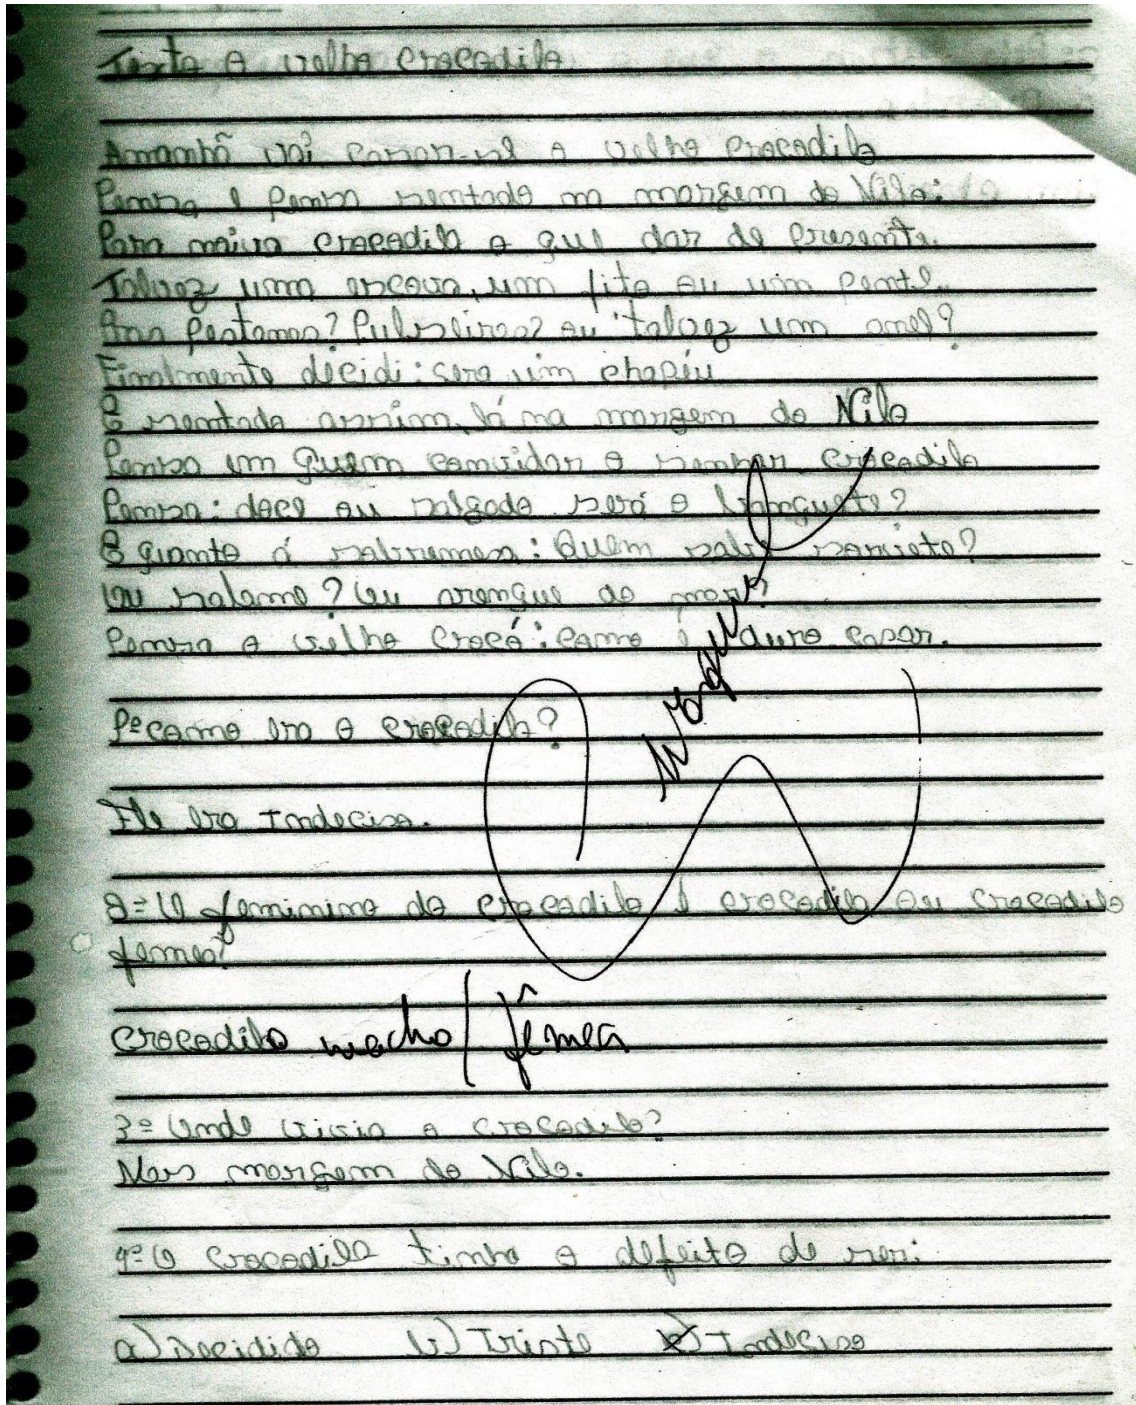 Texto O velho crocodilo
Amanhã vai casar-se o velho crocodilo
Pensa e pensa sentado na margem do Nilo:
Para noiva crocodilo o que dar de presente.
Talvez uma escova, um fita ou um pente..
Pestanas? Pulseiras? ou talvez um anel?
Finalmente decidi: sera um chapéu
E sentado assim, lá na margem do Nilo
Pensa em quem convidar o senhor crocodilo
Pensa: doce ou salgado será o banquete?
E quanto á sobremesa: Quem sabe sorvete?
Ou salame? Ou arenque do mar?
Pensa o velho Crocó: como é duro casar.
1º como era o crocodilo?
Ele era Indeciso.
2º O feminino do crocodilo é crocodila ou crocodilo
femea?
crocodilo macho/fêmea
3º Onde vivia o crocodilo?
Nas margem do Nilo.
4º O Crocodilo tinha o defeito de ser:
a) Decidido b) Triste x) Indeciso